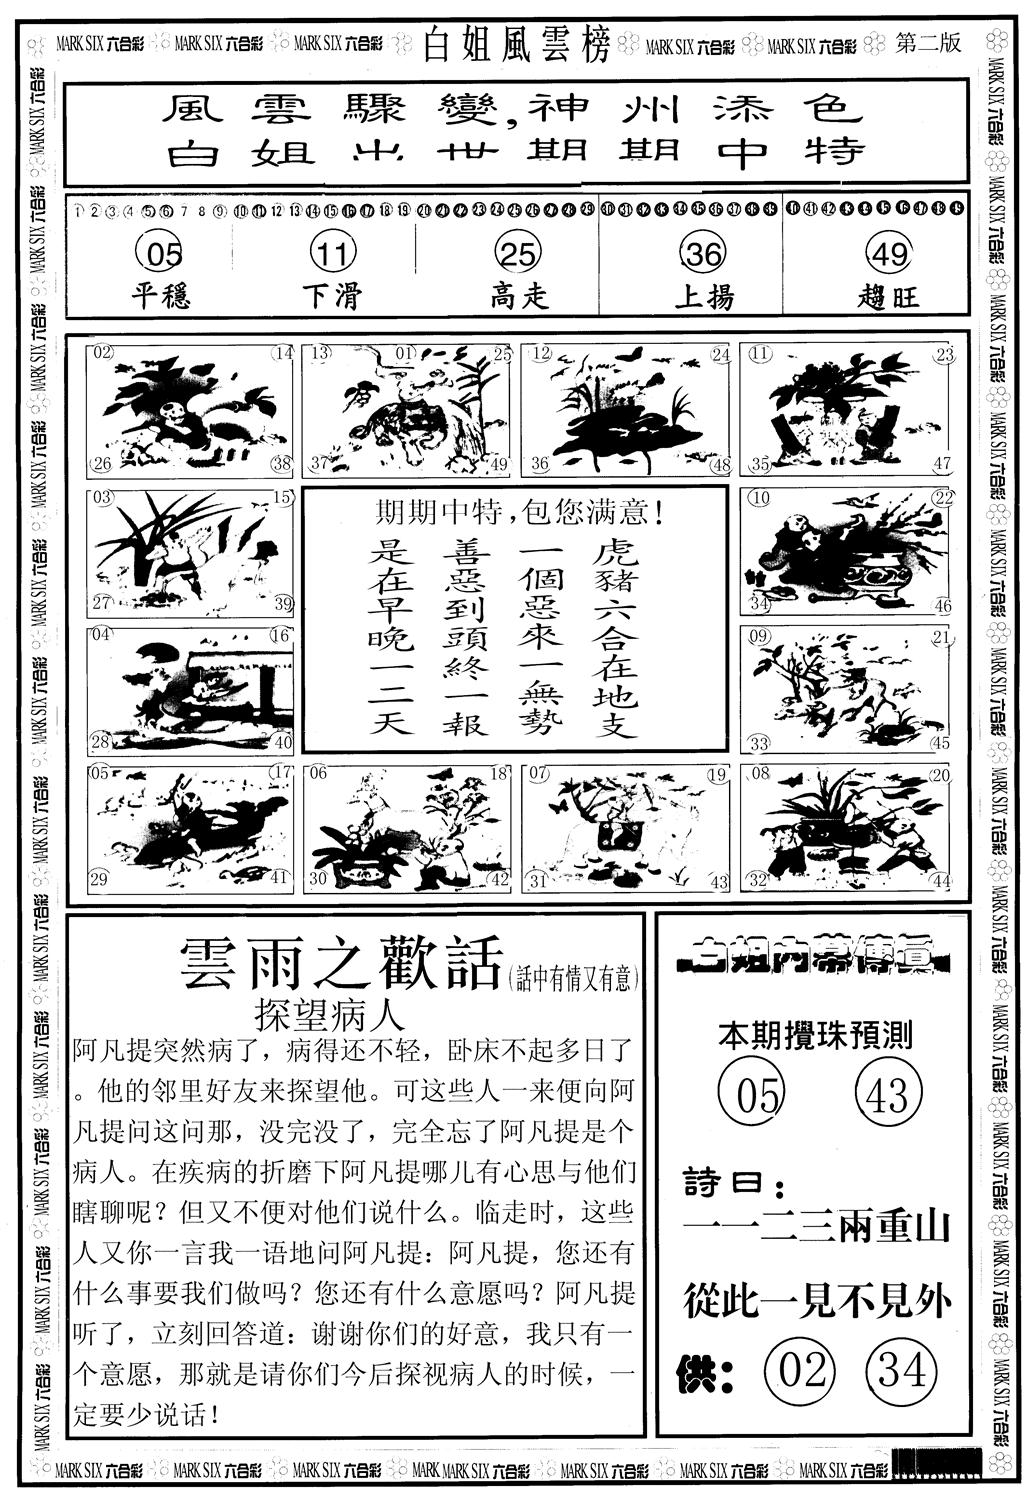 MARK SIX 六合彩 MARK SIX 六合彩 MARK SIX 六合彩 白姐風雲榜 MARK SIX 六合彩 MARK SIX 六合彩 第二版
風雲驟變,神州添色
白姐出世期期中特
1 2 3 4 5 6 7 8 9 10 11 12 13 14 15 16 17 18 19 20 21 22 23 24 25 26 27 28 29 30 31 32 33 34 35 36 37 38 39 40 41 42 43 44 45 46 47 48 49
05 11 25 36 49
平穩 下滑 高走 上揚 趨旺
02 14 13 01 25 12 24 11 23
26 38 37 49 36 48 35 47
03 15 10 22
27 39 34 46
04 16 09 21
28 40 33 45
期期中特,包您满意!
虎豬六合在地支
一個惡來一無勢
善惡到頭終一報
是在早晚一二天
05 17 06 18 07 19 08 20
29 41 30 42 31 43 32 44
雲雨之歡話(話中有情又有意)
探望病人
阿凡提突然病了，病得还不轻，卧床不起多日了
。他的邻里好友来探望他。可这些人一来便向阿
凡提问这问那，没完没了，完全忘了阿凡提是个
病人。在疾病的折磨下阿凡提哪儿有心思与他们
瞎聊呢？但又不便对他们说什么。临走时，这些
人又你一言我一语地问阿凡提：阿凡提，您还有
什么事要我们做吗？您还有什么意愿吗？阿凡提
听了，立刻回答道：谢谢你们的好意，我只有一
个意愿，那就是请你们今后探视病人的时候，一
定要少说话！
白姐内幕傳真
本期攪珠預測
05 43
詩曰：
一一二三兩重山
從此一見不見外
供：02 34
MARK SIX 六合彩 MARK SIX 六合彩 MARK SIX 六合彩 MARK MARK SIX 六合彩 MARK SIX 六合彩 MARK SIX 六合彩 MARK SIX 六合彩